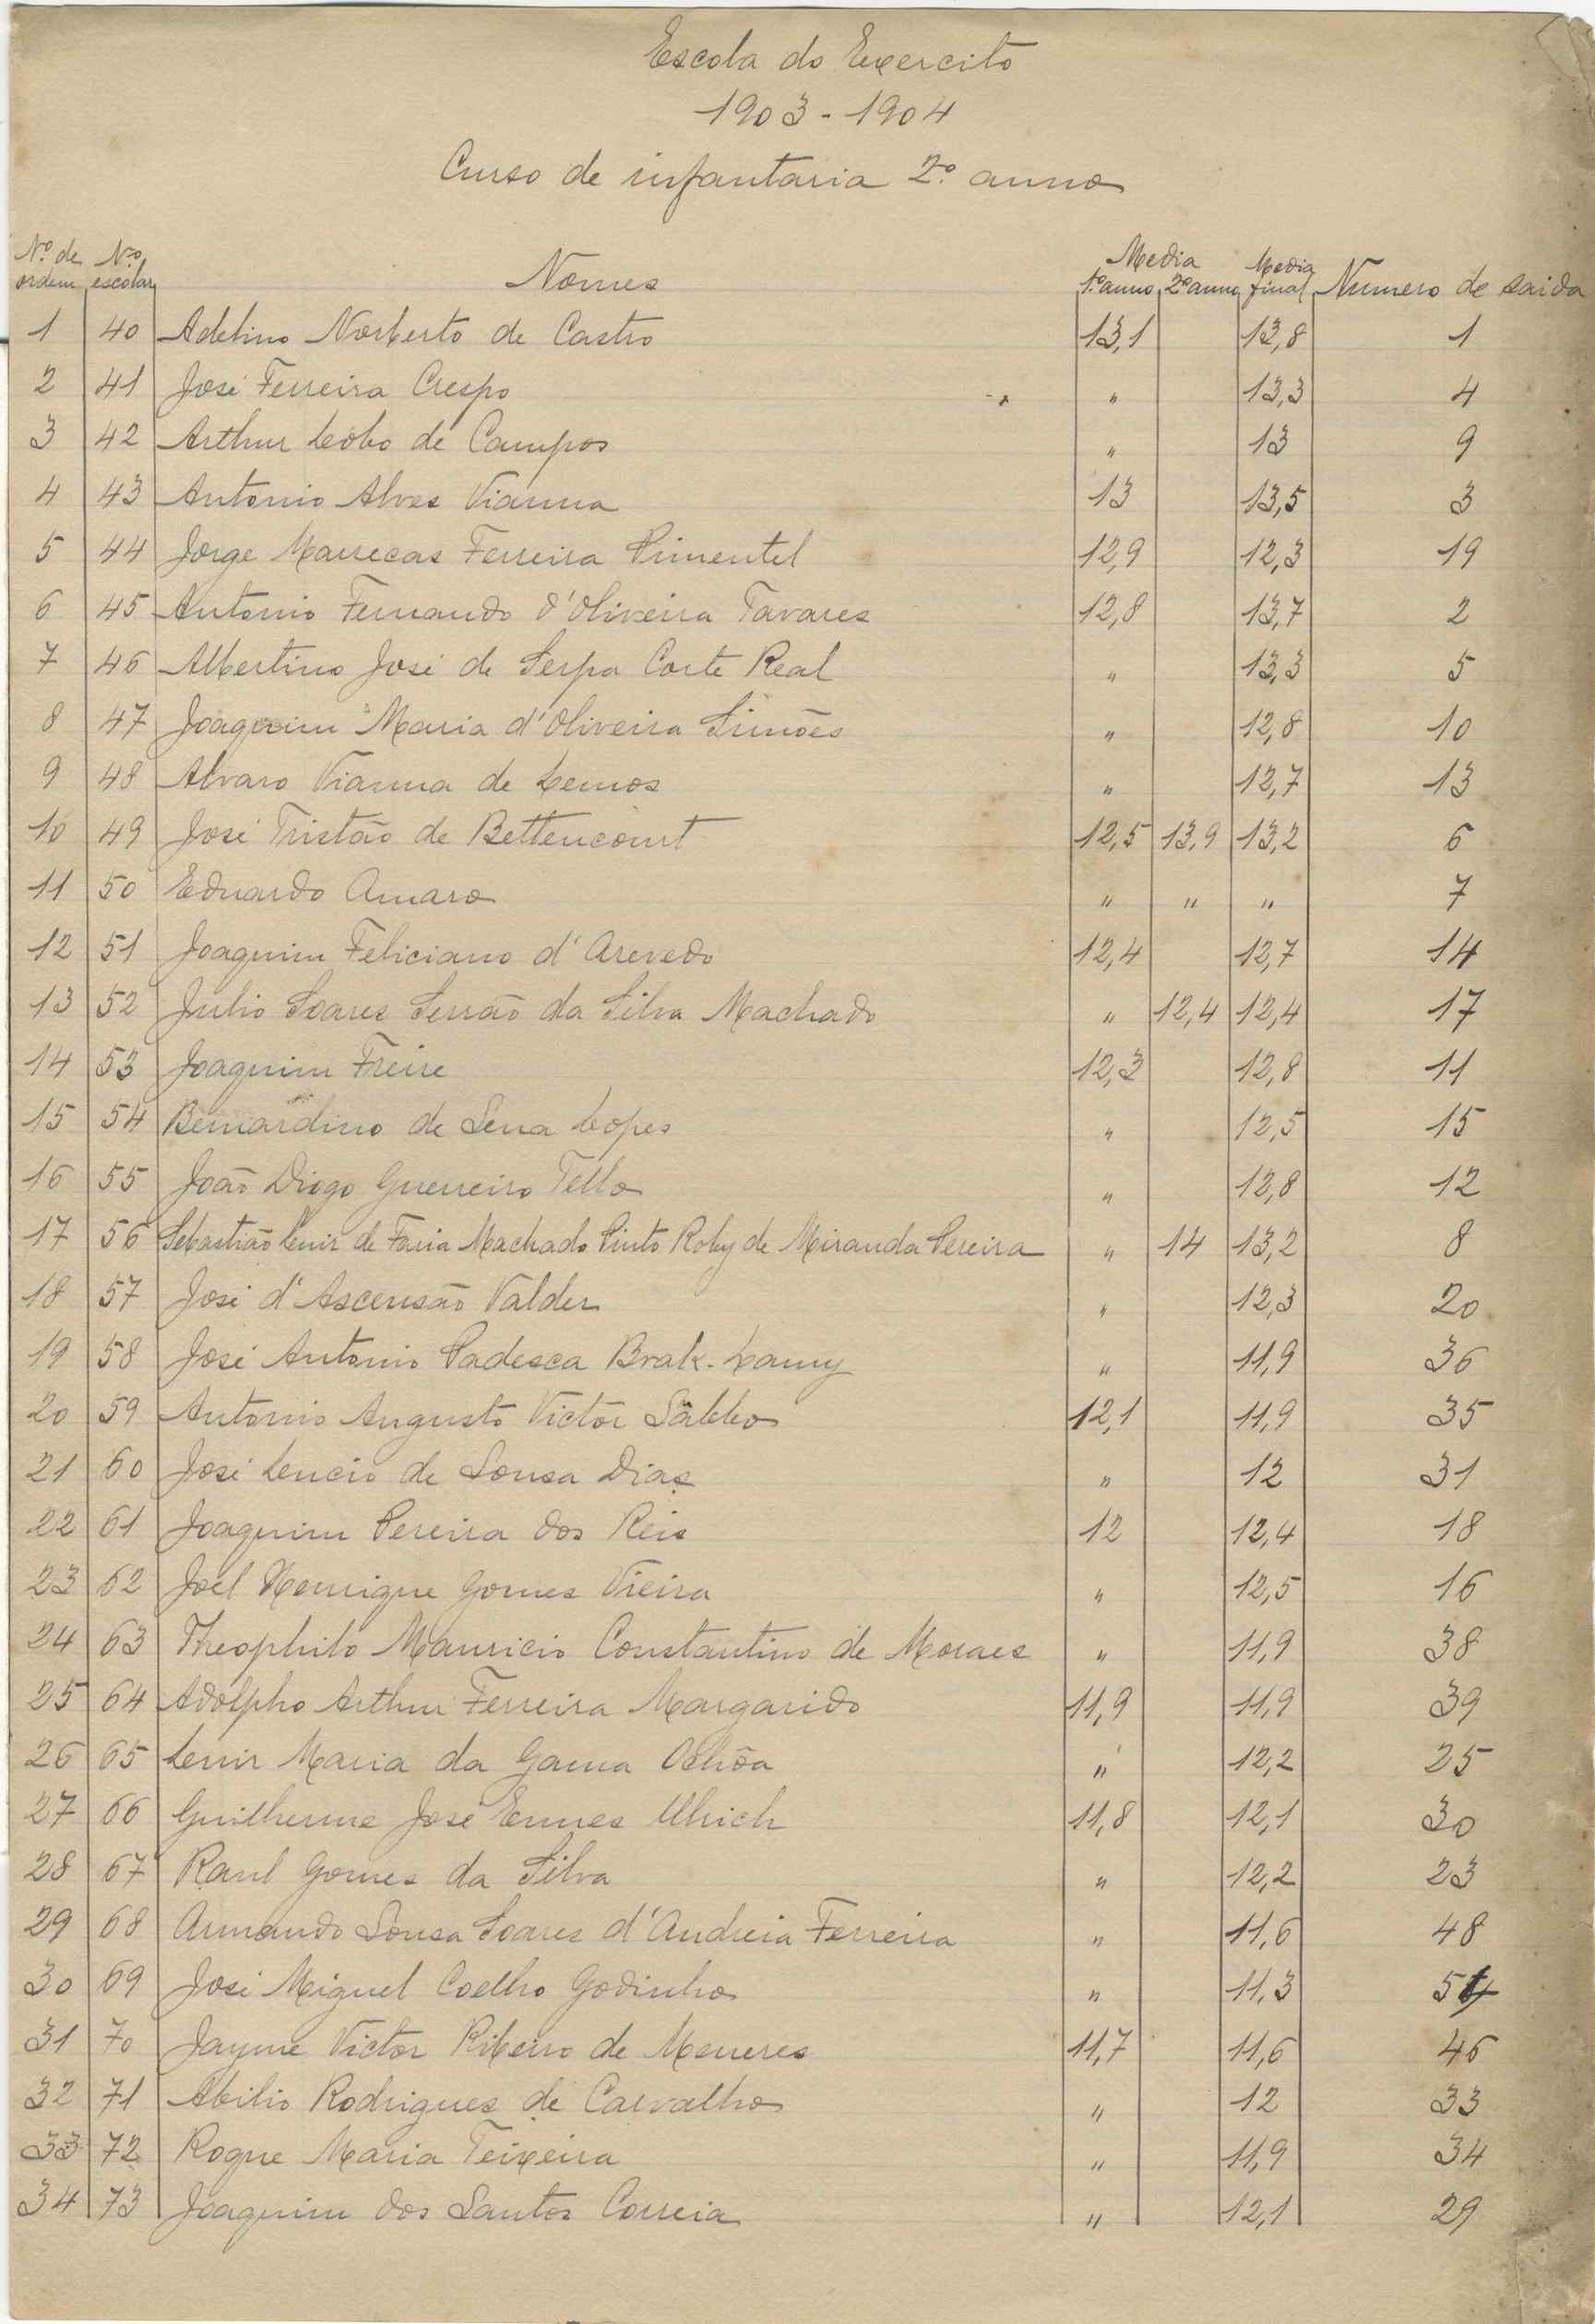 Escola do Exercito
1903-1904
Curso de infantaria 2º anno
Nº de ordem Nº escolar Nomes Media 1º anno 2º anno Media final Numero de saida
1 40 Adelino Norberto de Castro 13,1 13,8 1
2 41 José Ferreira Crespo " 13,3 4
3 42 Arthur Lobo de Campos " 13 9
4 43 Antonio Alves Vianna 13 13,5 3
5 44 Jorge Marrecas Ferreira Pimentel 12,9 12,3 19
6 45 Antonio Fernando d'Oliveira Tavares 12,8 13,7 2
7 46 Albertino José de Serpa Corte Real " 13,3 5
8 47 Joaquim Maria d'Oliveira Simões " 12,8 10
9 48 Alvaro Vianna de Lemos " 12,7 13
10 49 José Tristão de Bettencourt 12,5 13,9 13,2 6
11 50 Eduardo Amaro " " " 7
12 51 Joaquim Feliciano d'Azevedo 12,4 12,7 14
13 52 Julio Soares Serrão da Silva Machado " 12,4 12,4 17
14 53 Joaquim Freire 12,3 12,8 11
15 54 Bernardino de Sena Lopes " 12,5 15
16 55 João Diogo Guerreiro Tello " 12,8 12
17 56 Sebastião Luiz de Faria Machado Pinto Roby de Miranda Pereira " 14 13,2 8
18 57 José d'Ascensão Valdez " 12,3 20
19 58 José Antonio Padesca Brak-Lamy " 11,9 36
20 59 Antonio Augusto Victor Sabbo 12,1 11,9 35
21 60 José Lucio de Sousa Dias " 12 31
22 61 Joaquim Pereira dos Reis 12 12,4 18
23 62 Joel Henrique Gomes Vieira " 12,5 16
24 63 Theophilo Mauricio Constantino de Moraes " 11,9 38
25 64 Adolpho Arthur Ferreira Margarido 11,9 11,9 39
26 65 Luiz Maria da Gama Ochôa " 12,2 25
27 66 Guilherme José Ennes Ulrich 11,8 12,1 30
28 67 Raul Gomes da Silva " 12,2 23
29 68 Armando Sousa Soares d'Andreia Ferreira " 11,6 48
30 69 José Miguel Coelho Godinho " 11,3
31 70 Jayme Victor Ribeiro de Menezes 11,7 11,6 46
32 71 Abilio Rodrigues de Carvalho " 12 33
33 72 Roque Maria Teixeira " 11,9 34
34 73 Joaquim dos Santos Correia " 12,1 29